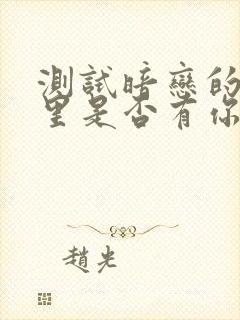 測試暗戀的
里是否有你
趙光